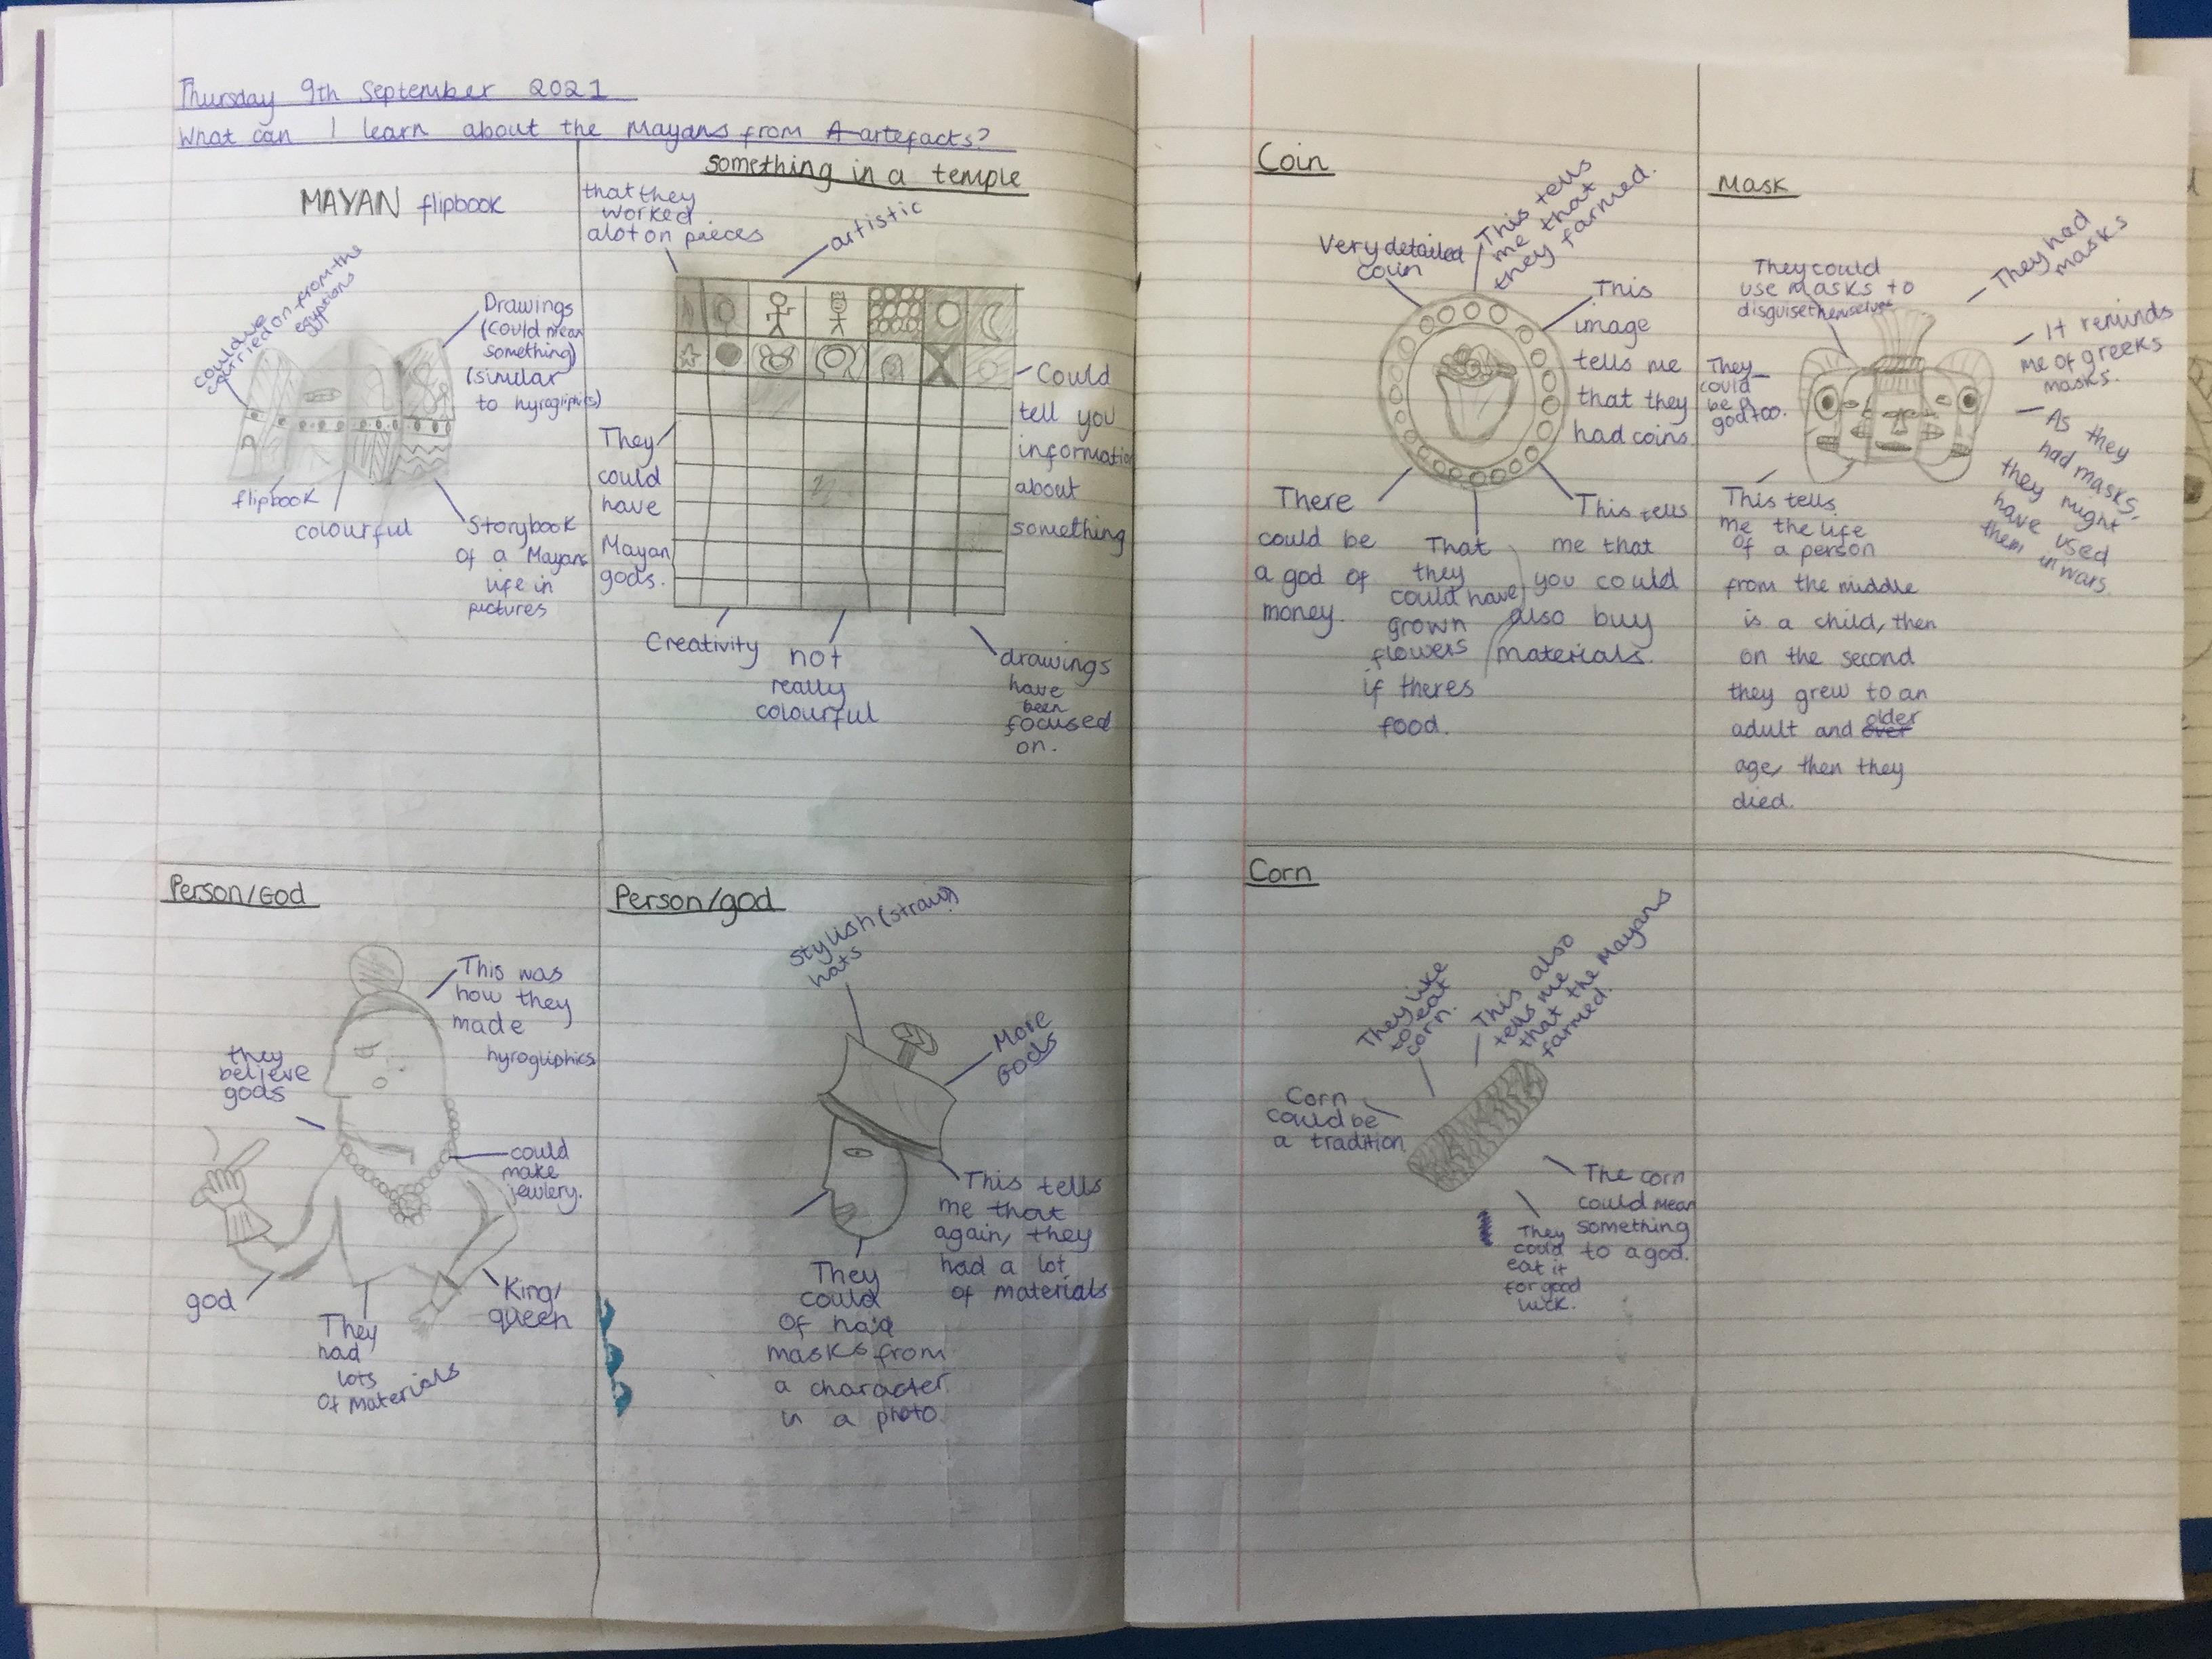 Thursday 9th September 2021
What can I learn about the Mayans from A artefacts?
MAYAN flipbook
could've
carried on from the
egyptions
Drawings
(could mean
something)
(similar
to hyrogliphics)
flipbook
colourful
Storybook
of a Mayans
life in
pictures
something in a temple
that they
worked
alot on pieces
artistic
Could
tell you
information
about
something
They
could
have
Mayan
gods.
Creativity
not
really
colourful
drawings
have
been
focused
on.
Coin
Very detailed
coin
This tells
me that
they farmed.
This
image
tells me
that they
had coins
There
could be
a god of
money.
That
they
could have
grown
flowers
if theres
food.
This tells
me that
you could
also buy
materials.
Mask
They could
use masks to
disguise themselves
They had
masks
It reminds
me of greeks
masks.
They
could
be a
god too.
As they
had masks,
they might
have used
them in wars.
This tells
me the life
of a person
from the middle
is a child, then
on the second
they grew to an
adult and over older
age, then they
died.
Person/God
This was
how they
made
hyrogliphics
they
believe
gods
could
make
jewlery.
god
They
had
lots
of materials
King/
queen
Person/god
Stylish (straw)
hats
More
Gods
This tells
me that
again, they
had a lot
of materials
They
could
of had
masks from
a character
in a photo.
Corn
They like
to eat
corn.
This also
tells me
that the Mayans
farmed.
Corn
could be
a tradition
The corn
could mean
something
to a god.
They
could
eat it
for good
luck.